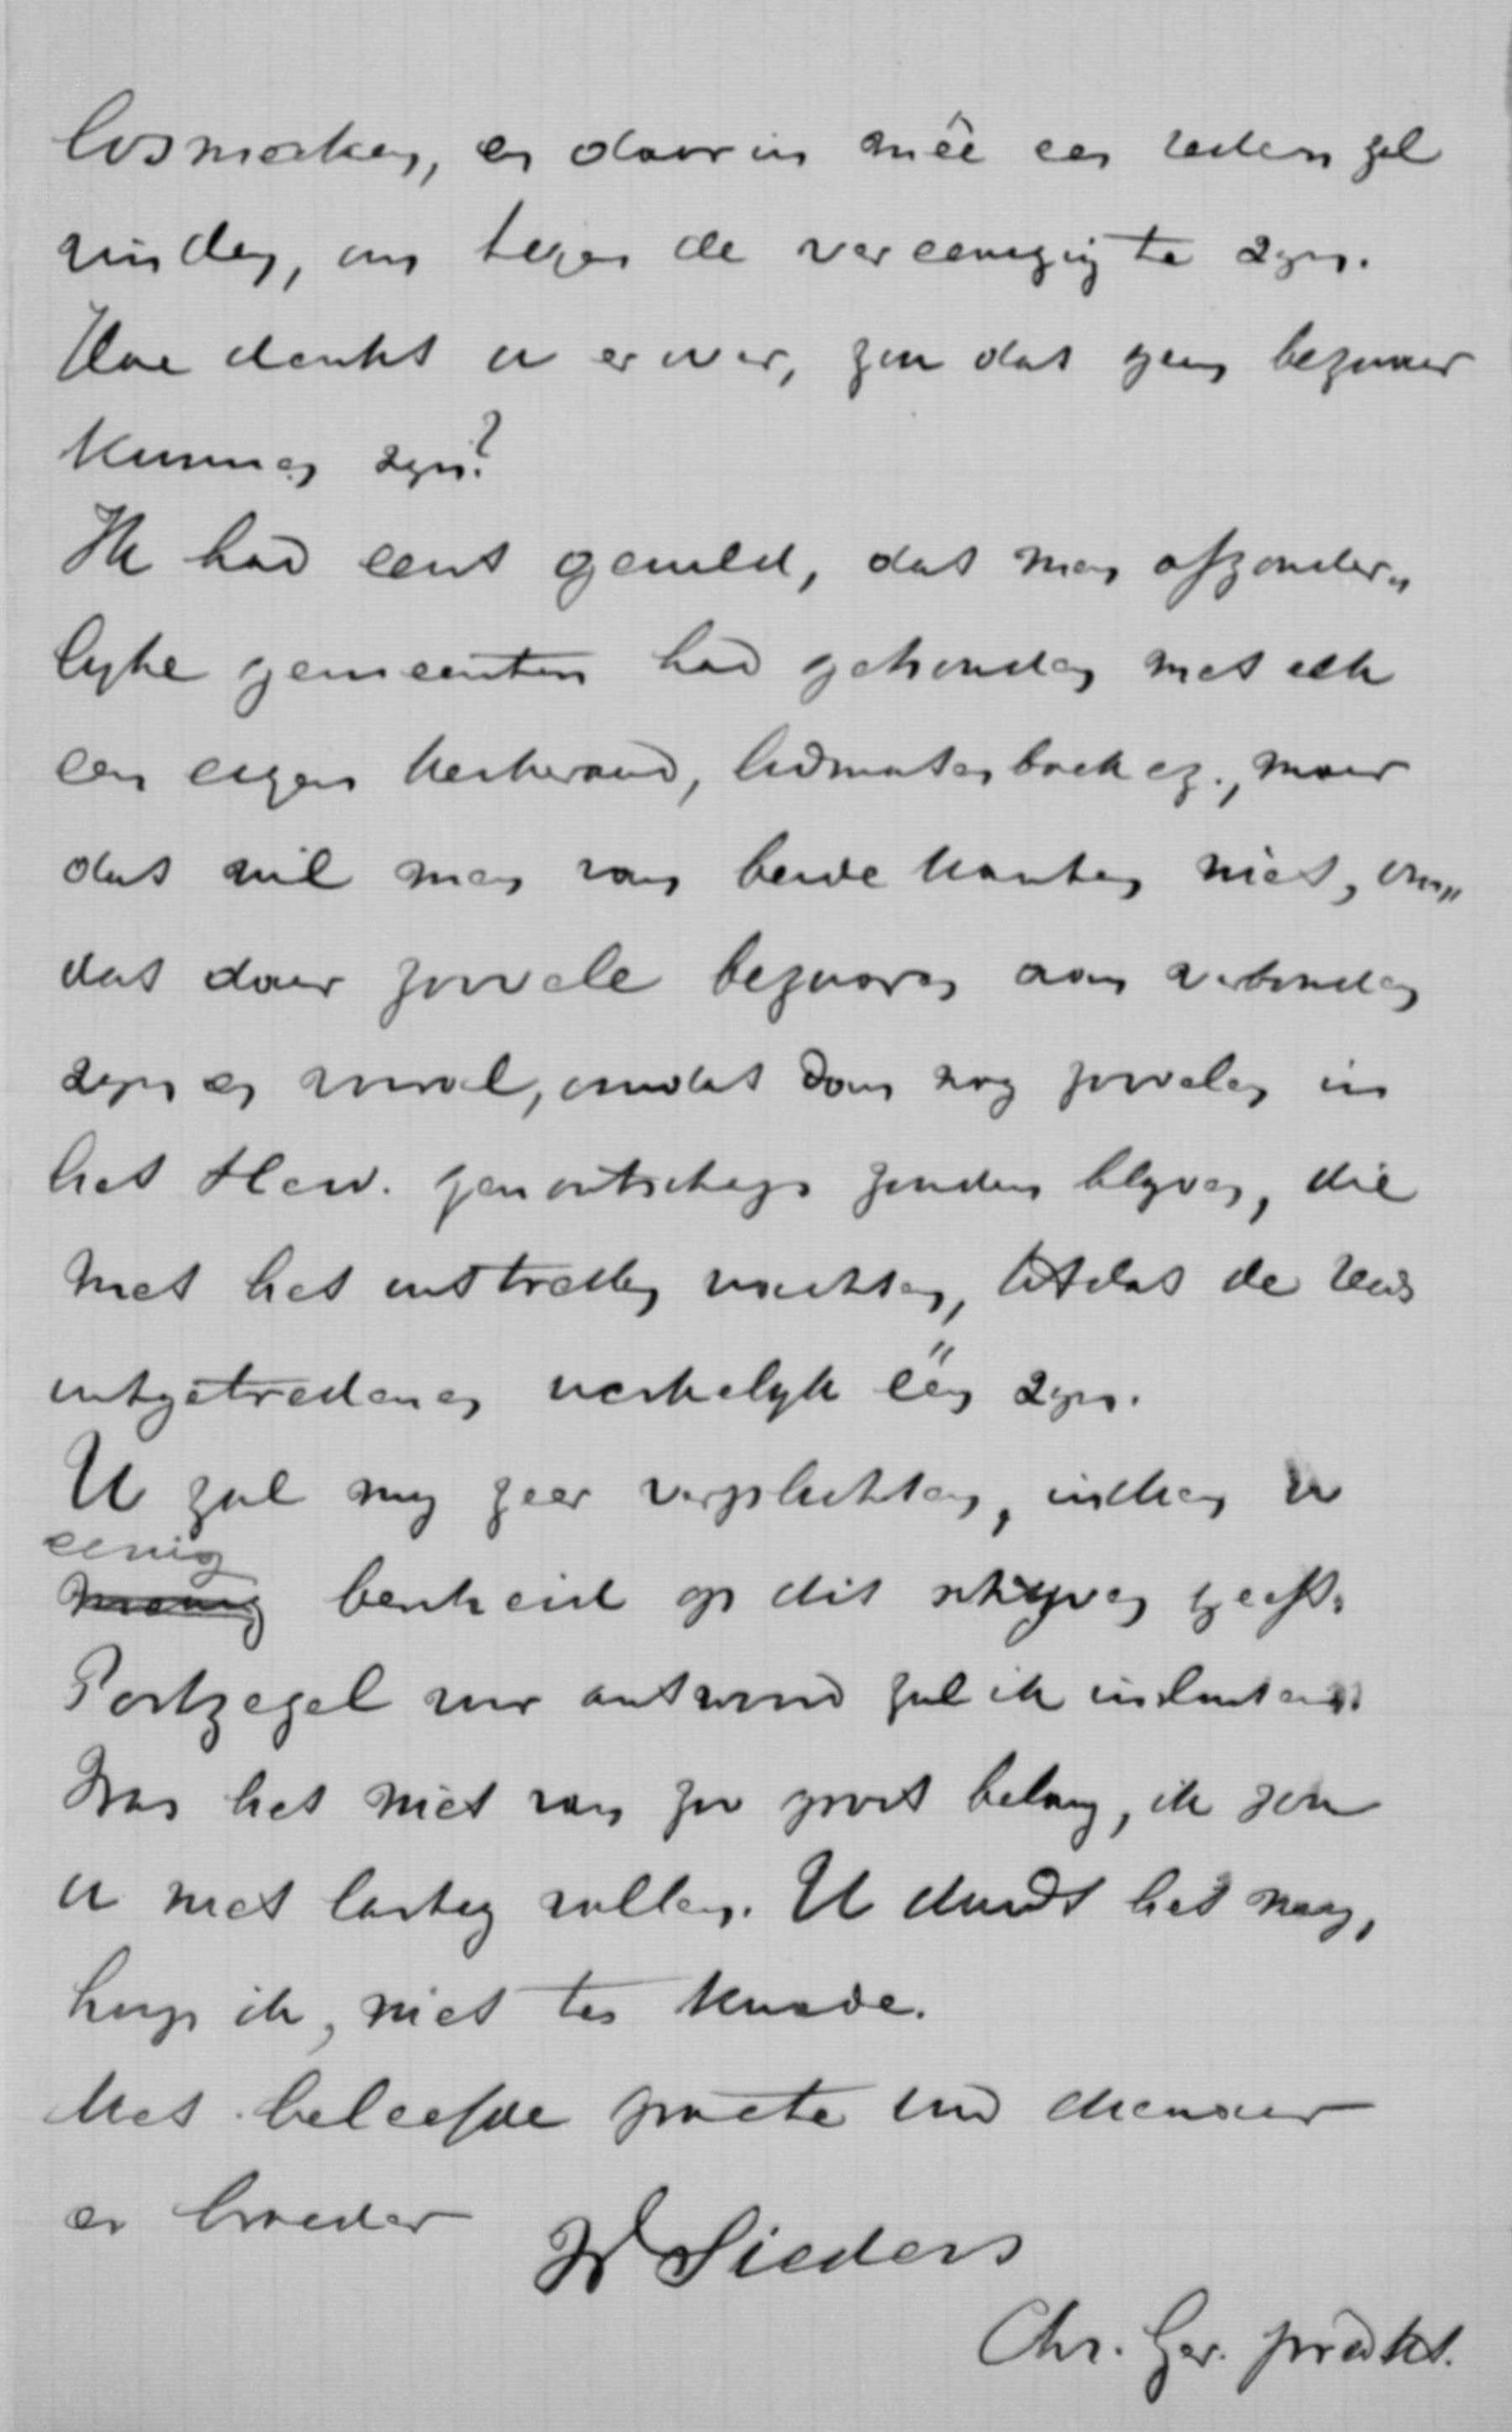 losmaken, en daarin meê een reden zal
vinden, om tegen de vereeniging te zyn.
Hoe denkt u er over, zou dat geen bezwaar
kunnen zyn?
Ik had eerst gewild, dat men afzonder„
lyke gemeenten had gehouden met elk
een eigen kerkeraad, lidmatenboek enz., maar
dat wil men van beide kanten niet, om„
dat daar zoovele bezwaren aan verbonden
zyn en vooral, omdat dan nog zoovelen in
het Herv. genootschap zouden blyven, die
met het uittreden wachten, totdat de reeds
uitgetredenen werkelyk één zyn.
U zal my zeer verplichten, indien u
eenig
bescheid op dit schryven geeft.
Postzegel voor antwoord zal ik insluiten.
Was het niet van zoo groot belang, ik zou
u niet lastig vallen. U duidt het my,
hoop ik, niet ten kwade.
Met beleefde groete Uw dienaar
en broeder
W Sieders
Chr. Ger. predikt.